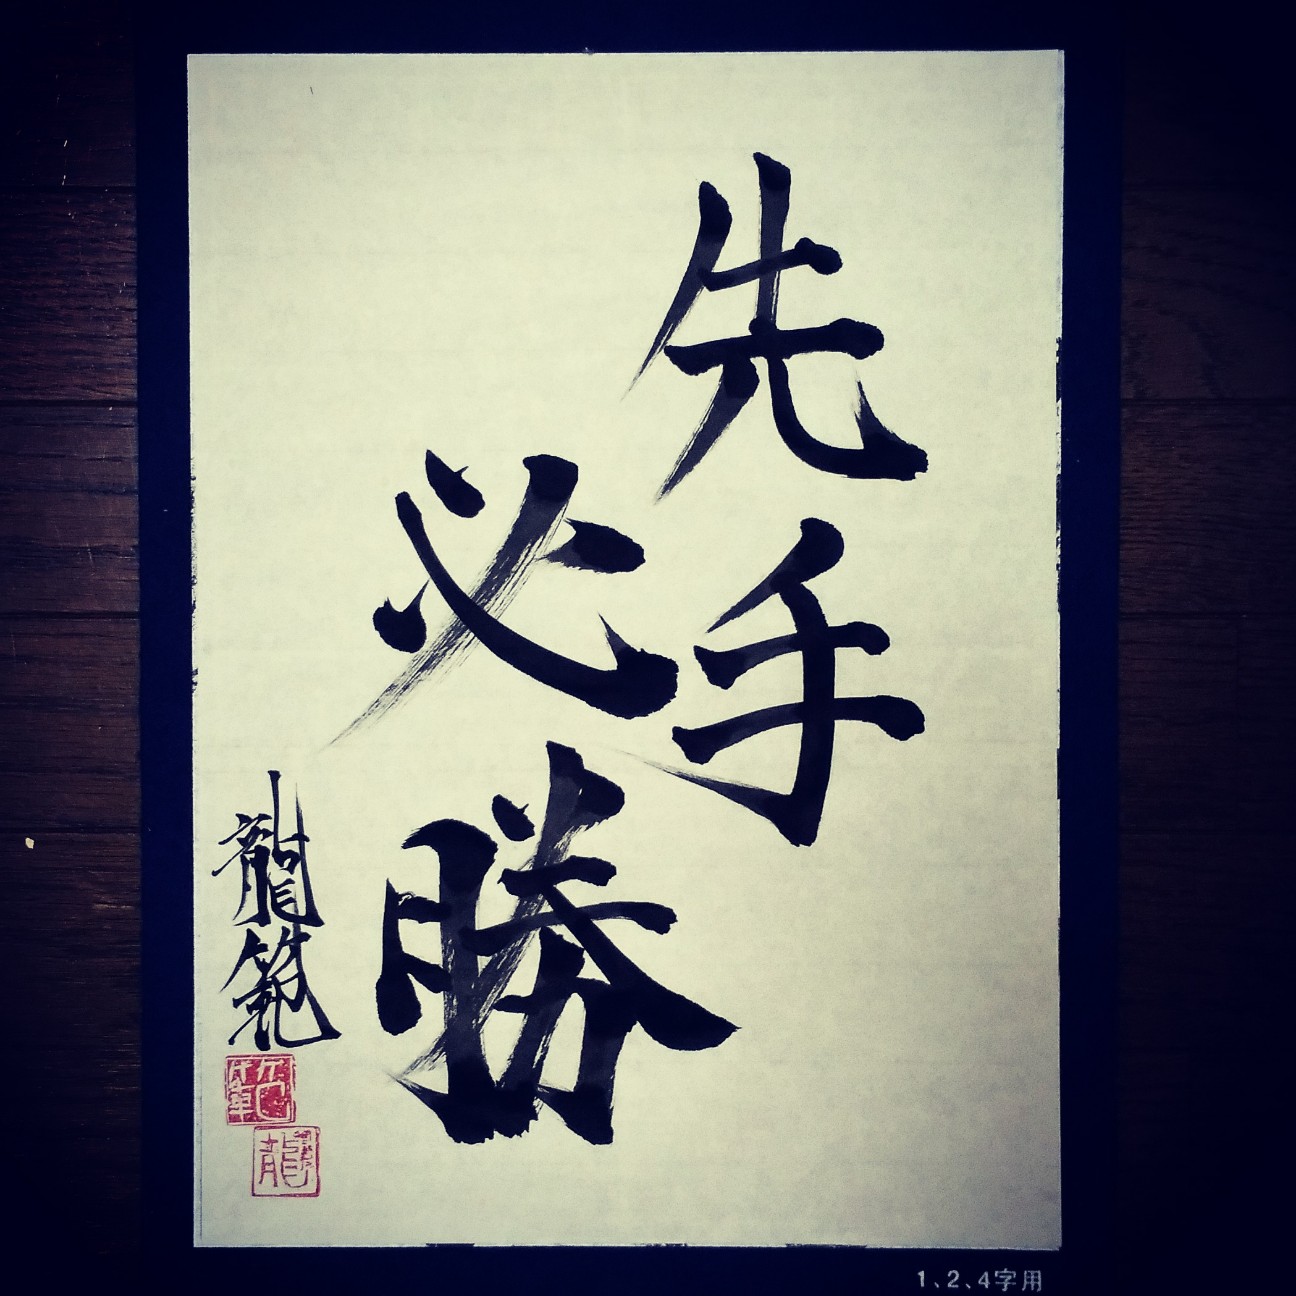 先手
必勝
龍範
範
龍
1、2、4字用